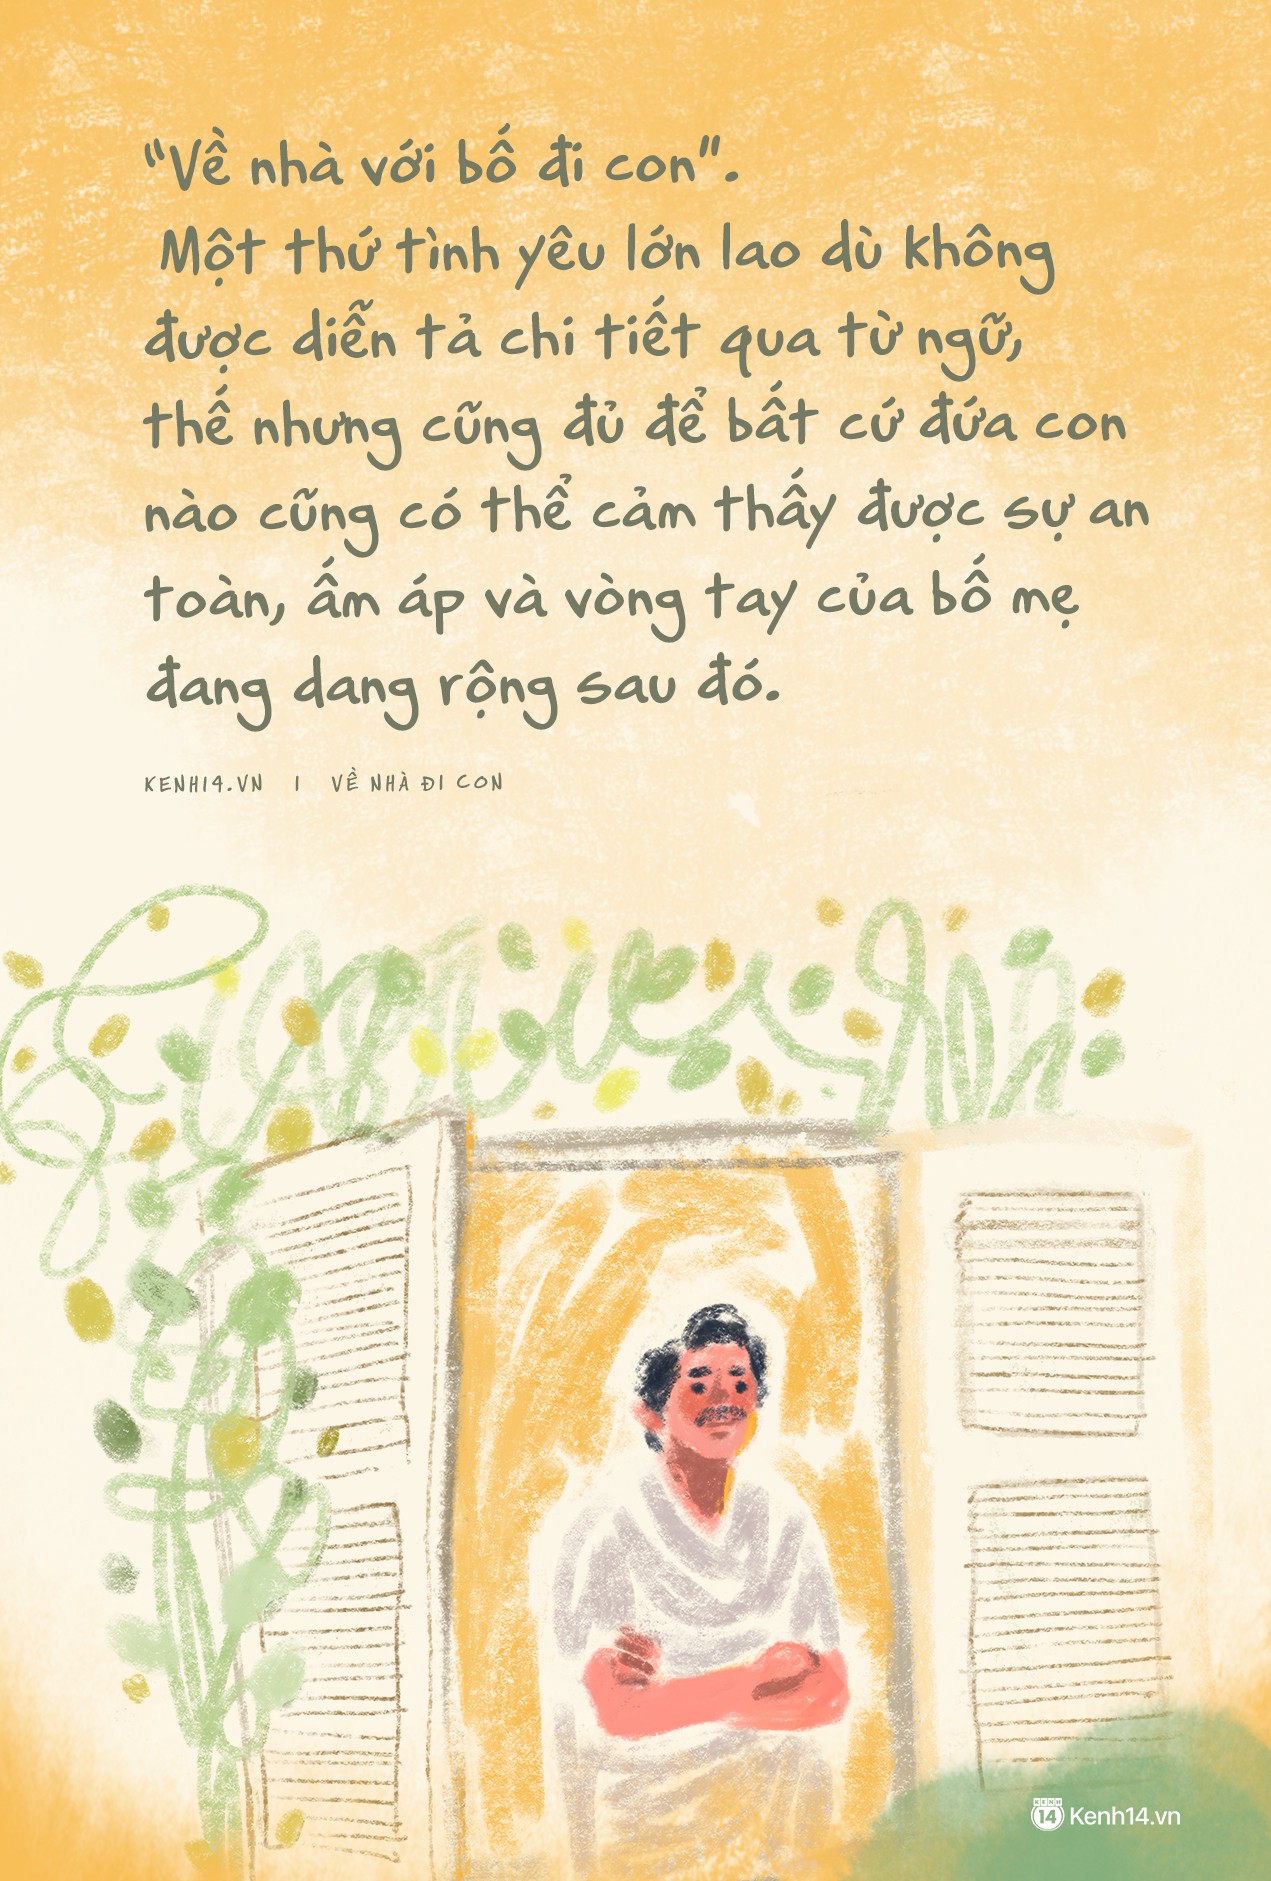 “Về nhà với bố đi con”.
Một thứ tình yêu lớn lao dù không
được diễn tả chi tiết qua từ ngữ,
thế nhưng cũng đủ để bất cứ đứa con
nào cũng có thể cảm thấy được sự an
toàn, ấm áp và vòng tay của bố mẹ
đang dang rộng sau đó.
KENH14.VN | VỀ NHÀ ĐI CON
KENH
14 Kenh14.vn